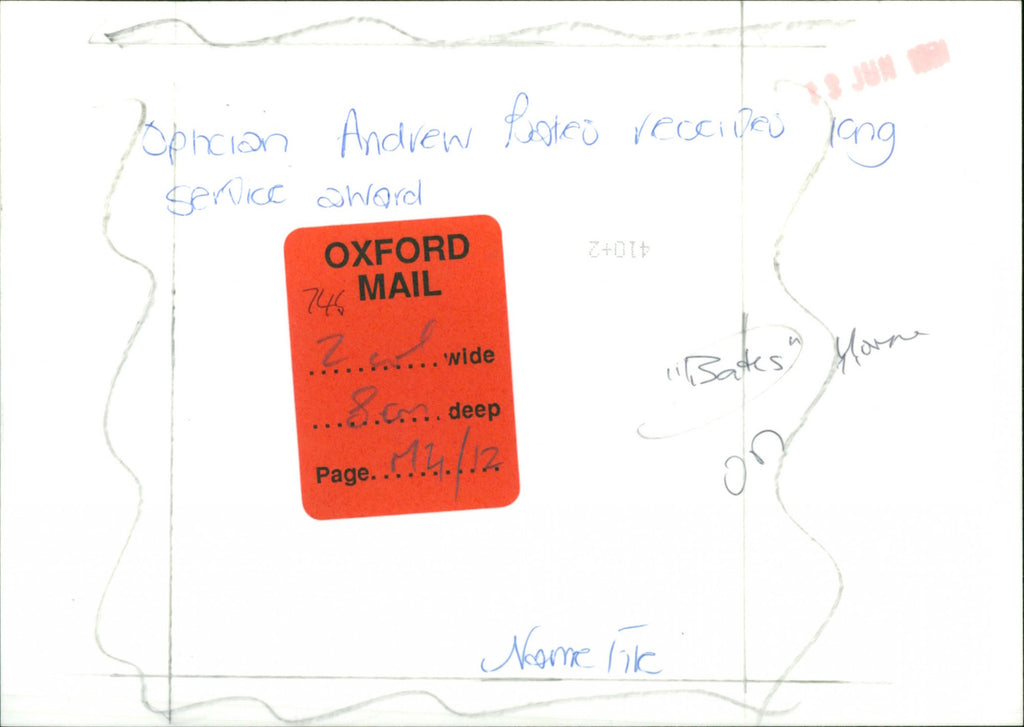 JUN
Optician Andrew received long
service award
OXFORD
MAIL
746
2 col wide
8cm deep
Page. M4/12
410+2
"Bates"
on
Name File